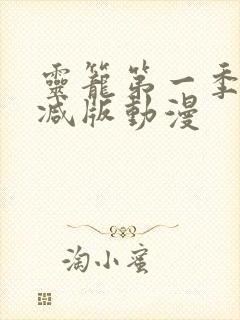 靈籠第一季
减版動漫
淘小蜜